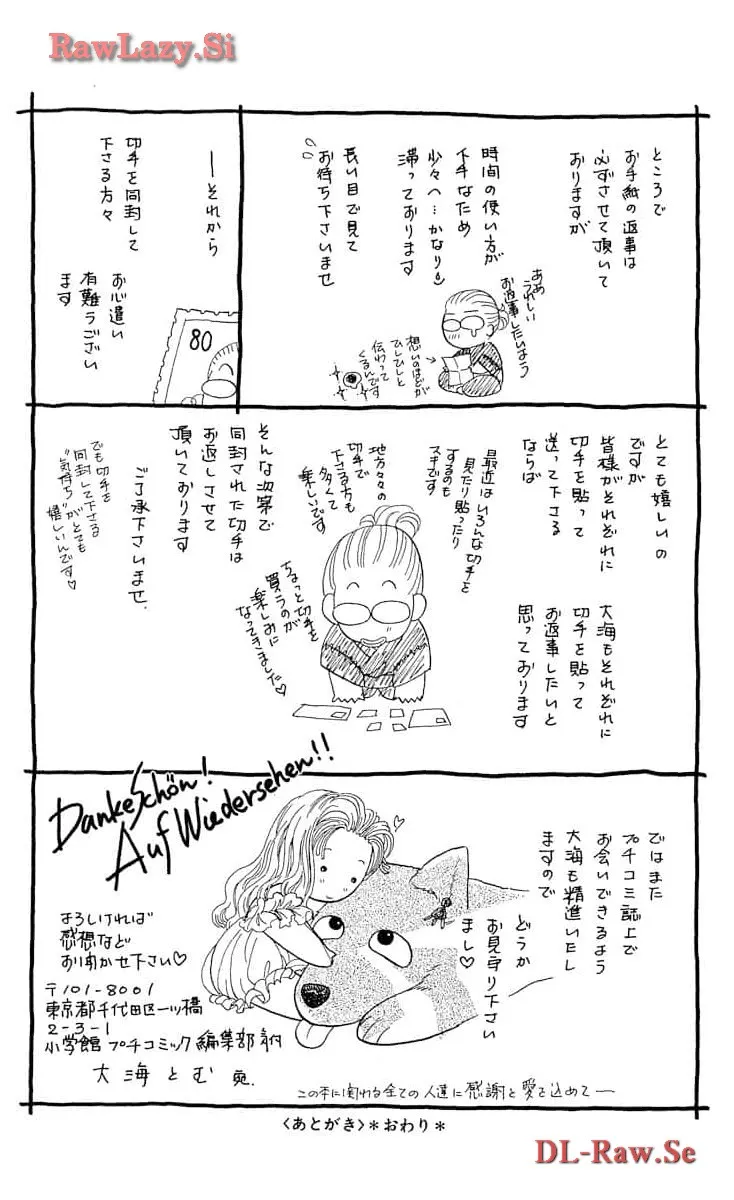 RawLazy.Si
ところで
お手紙の返事は
必ずさせて頂いて
おりますが
時間の使い方が
下手なため
少々へ…かなり
滞っております
長い目で見て
お待ち下さいませ
ああ
うれしい
お返事したいよう
想いのほどが
ひしひしと
伝わって
くるんです
—それから
切手を同封して
下さる方々
お心遣い
有難うござい
ます
80
とても嬉しいの
ですが
皆様がそれぞれに
切手を貼って
送って下さる
ならば
大海もそれぞれに
切手を貼って
お返事したいと
思っております
最近はいろんな切手を
見たり貼ったり
するのも
スキです
地方々々の
切手で
下さる方も
多くて
楽しいです
ちょっと切手を
買うのが
楽しみに
なってきましだ♡
そんな次第で
同封された切手は
お返しさせて
頂いております
ご了承下さいませ.
でも切手を
同封して下さる
“気持ち”がとても
嬉しいんです♡
ではまた
プチコミ誌上で
お会いできるよう
大海も精進いたし
ますので
どうか
お見守り下さい
まし♡
Danke Schön!
Auf Wiedersehen!!
よろしければ
感想など
お聞かせ下さい♡
〒101-8001
東京都千代田区一ツ橋
2-3-1
小学館 プチコミック 編集部 気付
大海とむ 宛.
この本に関わる全ての人達に感謝と愛を込めて—
〈あとがき〉*おわり*
DL-Raw.Se